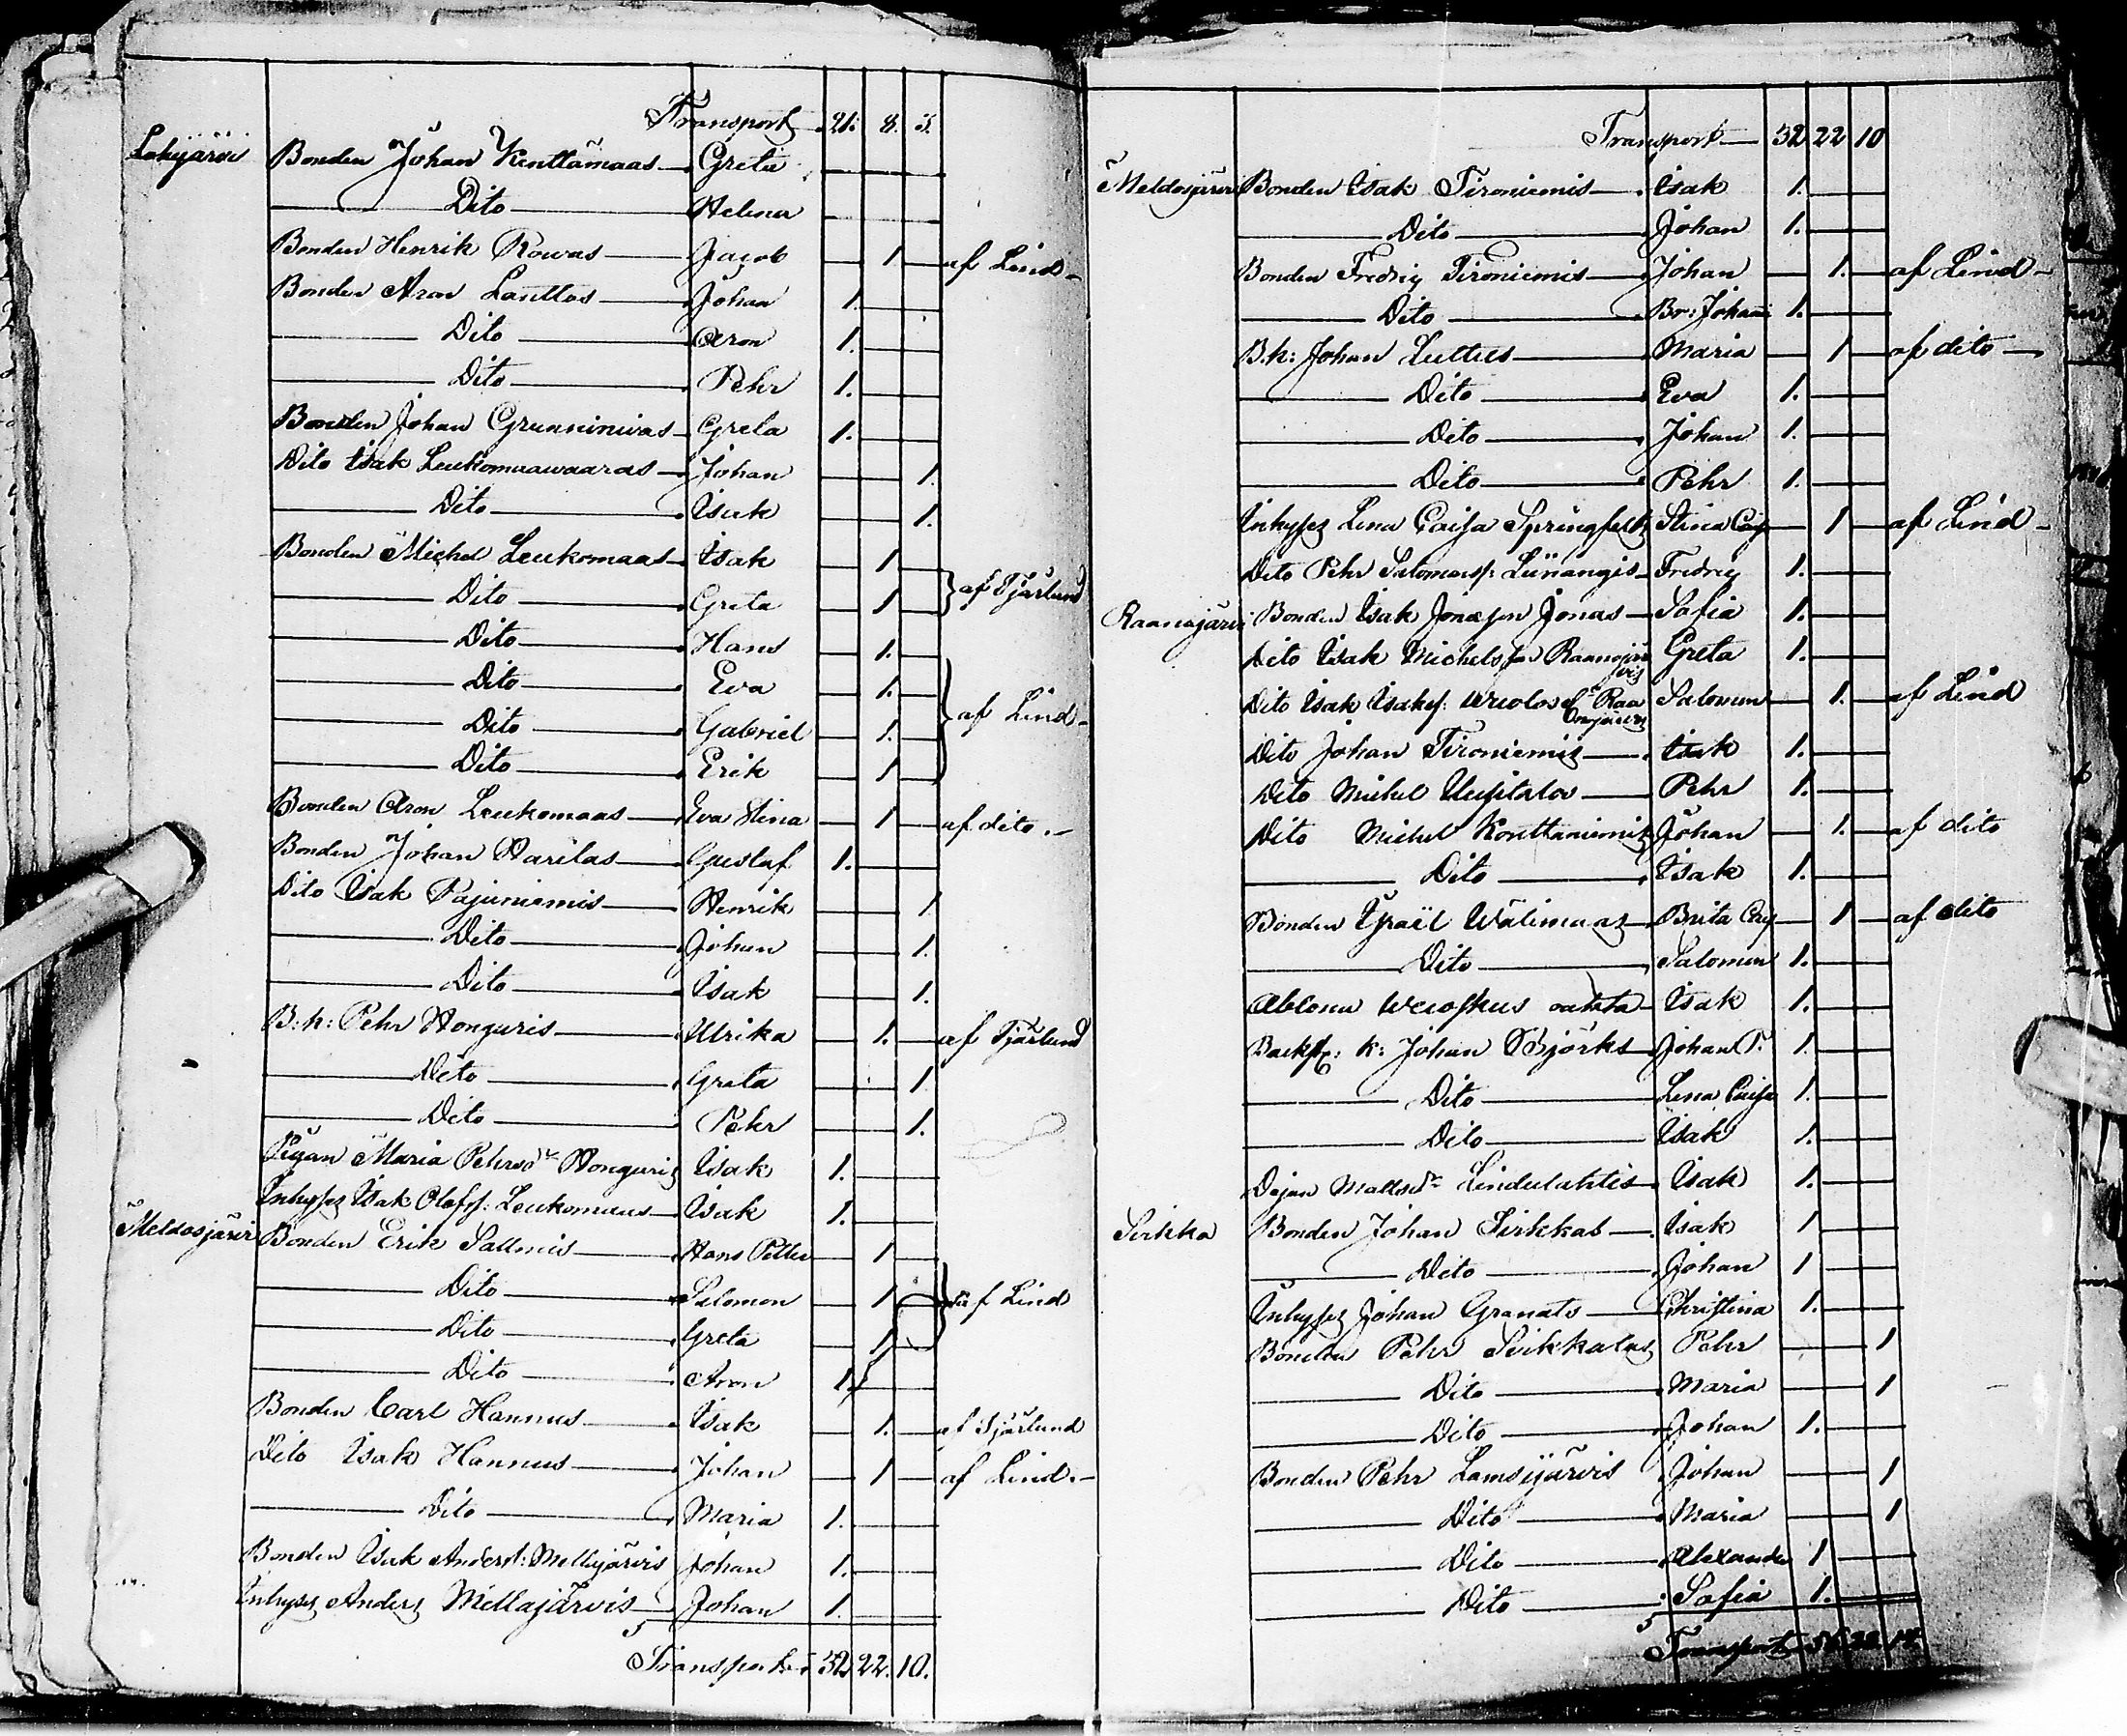 Transport 21. 8. 3.
Lohijärvi Bonden Johan Kenttämaas Greta
Dito Helena
Bonden Henrik Rowas Jacob 1 af Lind
Bonden Aron Lanttos Johan 1.
Dito Aron 1.
Dito Pehr 1.
Bonden Johan Grunninivas Greta 1.
Dito Isak Leukomaawaaras Johan 1.
Dito Isak 1.
Bonden Michel Leukomaas Isak 1
Dito Greta 1 af Tjärlund
Dito Hans 1.
Dito Eva 1.
Dito Gabriel 1. af Lind
Dito Erik 1
Bonden Aron Leukomaas Eva Stina 1 af dito
Bonden Johan Harilas Gustaf 1.
Dito Isak Pajuniemis Henrik 1
Dito Johan 1.
Dito Isak 1.
B:k: Pehr Honguris Ulrika 1. af Tjärlund
Dito Greta 1.
Dito Pehr 1.
Pigan Maria Pehrsdr Honguris Isak 1.
Inhyses Isak Olofs: Leukomaas Isak 1.
Meldosjärvi Bonden Erik Sallmis Hans Petter 1
Dito Salomon 1 af Lind
Dito Greta 1
Dito Aron 1.
Bonden Carl Hannus Isak 1. af Tjärlund
Dito Isak Hannus Johan 1 af Lind
Dito Maria 1.
Bonden Isak Anders: Mellajärvis Johan 1.
Inhyses Anders Mellajärvis Johan 1.
Transport 32 22. 10.
Transport 32 22 10
Meldosjärvi Bonden Isak Tironiemis Isak 1.
Dito Johan 1.
Bonden Fredric Tironiemis Johan 1. af Lind
Dito Br: Johan 1.
B.k: Johan Luttus Maria 1 af dito
Dito Eva 1.
Dito Johan 1.
Dito Pehr 1.
Inhyses Lena Caisa Springfelt Stina Caj 1 af Lind
Dito Pehr Salomons: Liinangis Fredric 1.
Raanujärvi Bonden Isak Jonasson Jonas Sofia 1.
Dito Isak Michelsson Raanujärvis Greta 1.
Dito Isak Isaks: Raanujärvis Salomon 1. af Lind
Dito Johan Tironiemis Isak 1.
Dito Michel Uusitalos Pehr 1.
Dito Michel Konttaniemis Johan 1. af dito
Dito Isak 1.
Bonden Israël Wälimaas Brita Caj 1 af dito
Dito Salomon 1.
Isak 1.
Backst: k: Johan Björks Johan P. 1.
Dito Lena Caisa 1.
Dito Isak 1.
Mattsdr Lindulahtis Isak 1.
Sirkka Bonden Johan Sirkkas Isak 1
Dito Johan 1
Inhyses Johan Granats Christina 1.
Bonden Pehr Sirkkalas Pehr 1
Dito Maria 1
Dito Johan 1.
Bonden Pehr Lamsijärvis Johan 1
Dito Maria 1
Dito Alexander 1
Dito Sofia 1.
Transport